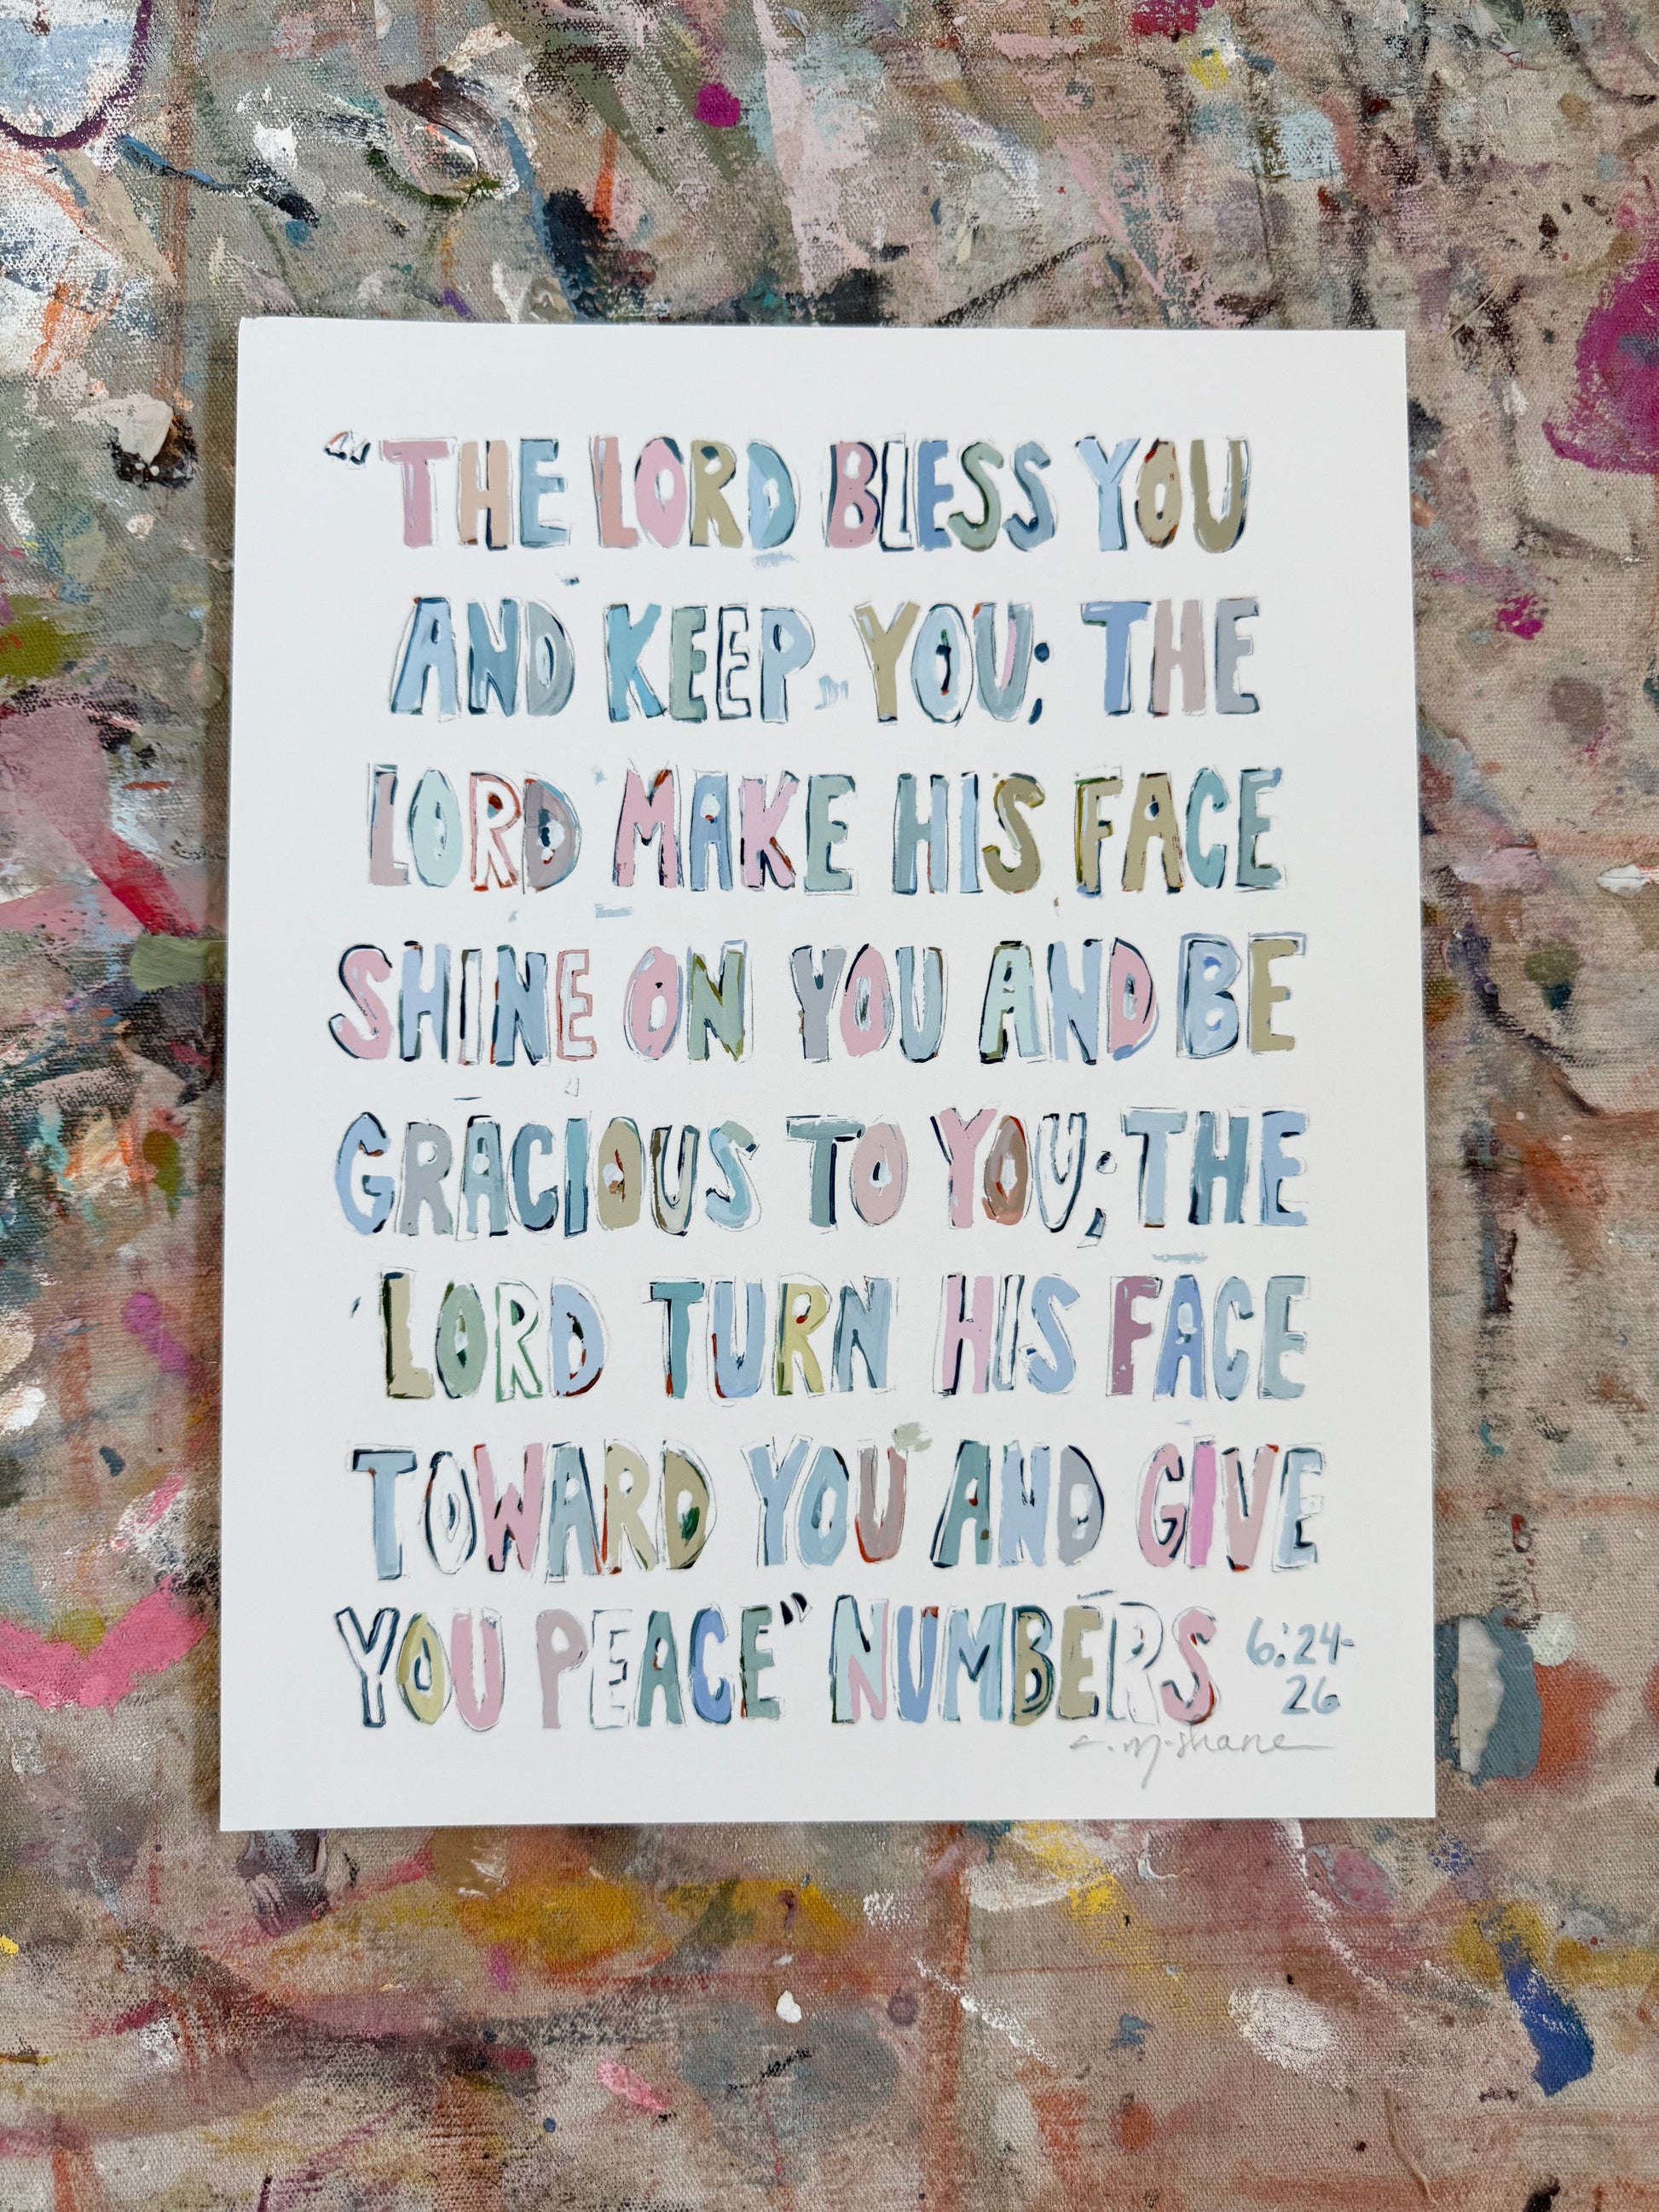 “THE LORD BLESS YOU
AND KEEP YOU; THE
LORD MAKE HIS FACE
SHINE ON YOU AND BE
GRACIOUS TO YOU; THE
LORD TURN HIS FACE
TOWARD YOU AND GIVE
YOU PEACE” NUMBERS 6:24-
26
c. mcshane